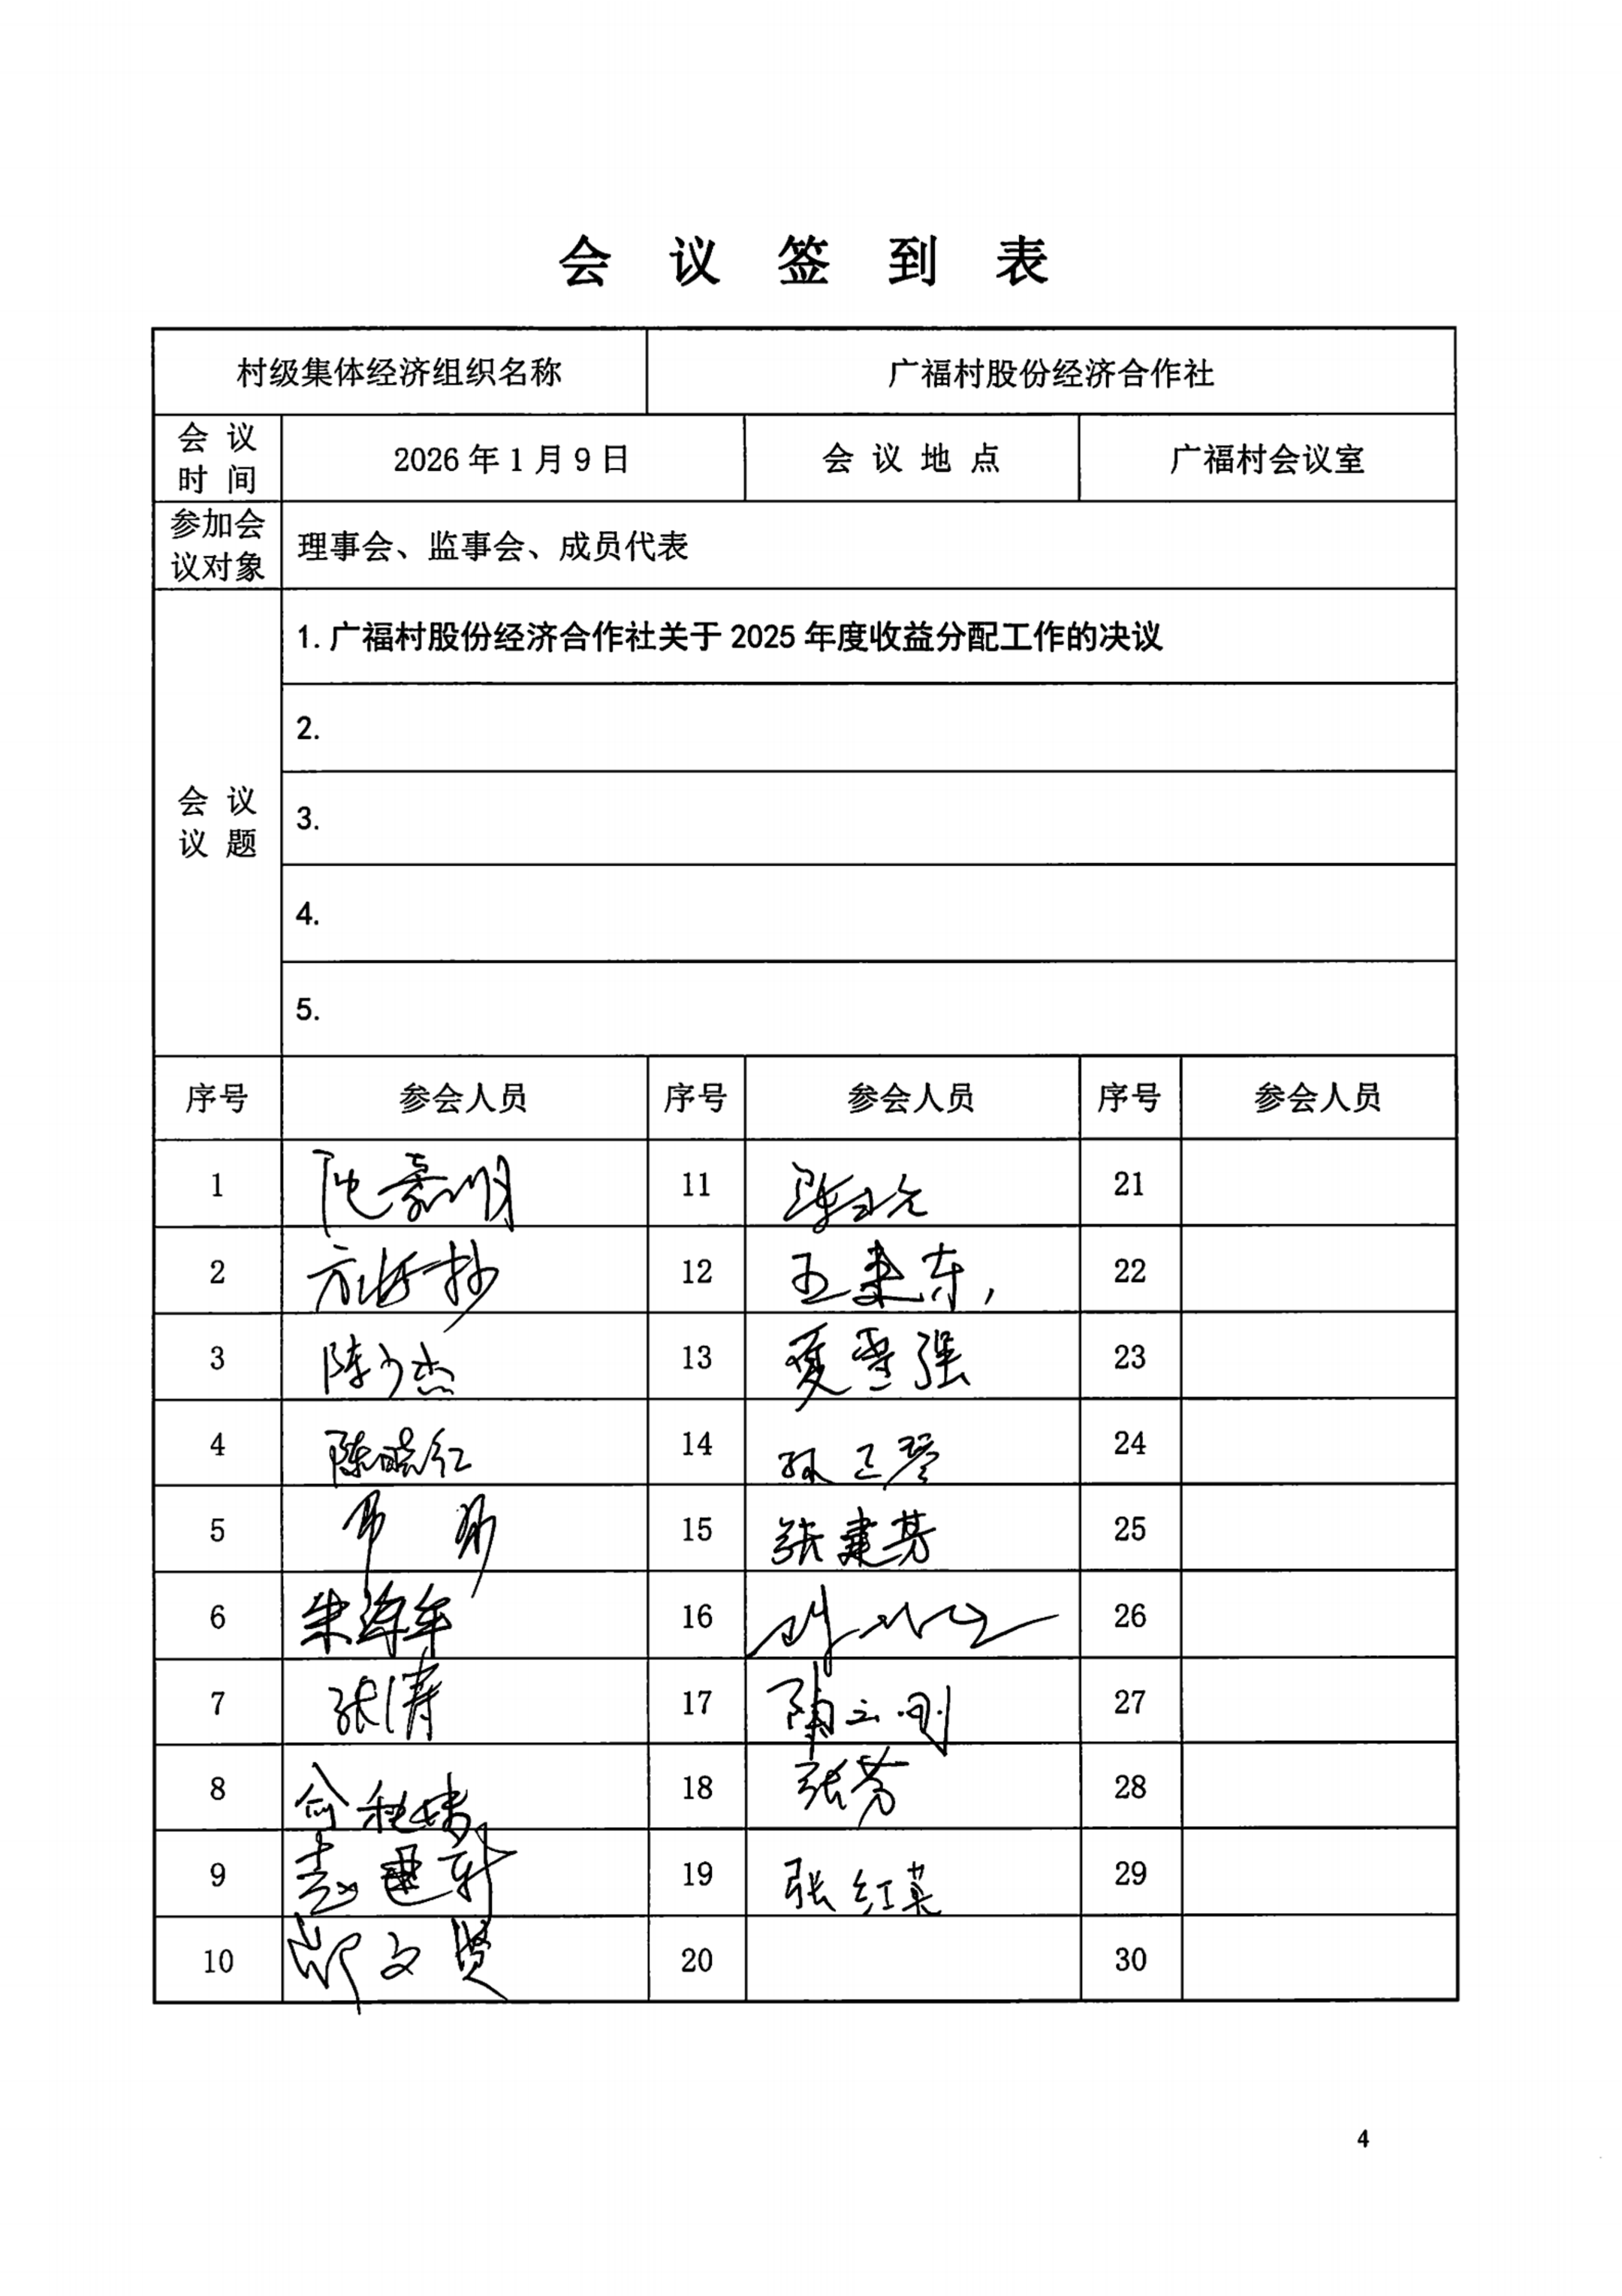 会 议 签 到 表
村级集体经济组织名称 广福村股份经济合作社
会 议 时 间 2026年1月9日 会 议 地 点 广福村会议室
参加会议对象 理事会、监事会、成员代表
会 议 议 题
1.广福村股份经济合作社关于2025年度收益分配工作的决议
2.
3.
4.
5.
序号 参会人员 序号 参会人员 序号 参会人员
1 11 21
2 12 王建东 22
3 陈少杰 13 23
4 陈晓红 14 24
5 15 张建芳 25
6 16 26
7 张涛 17 27
8 18 张芳 28
9 19 张红英 29
10 文贤 20 30
4